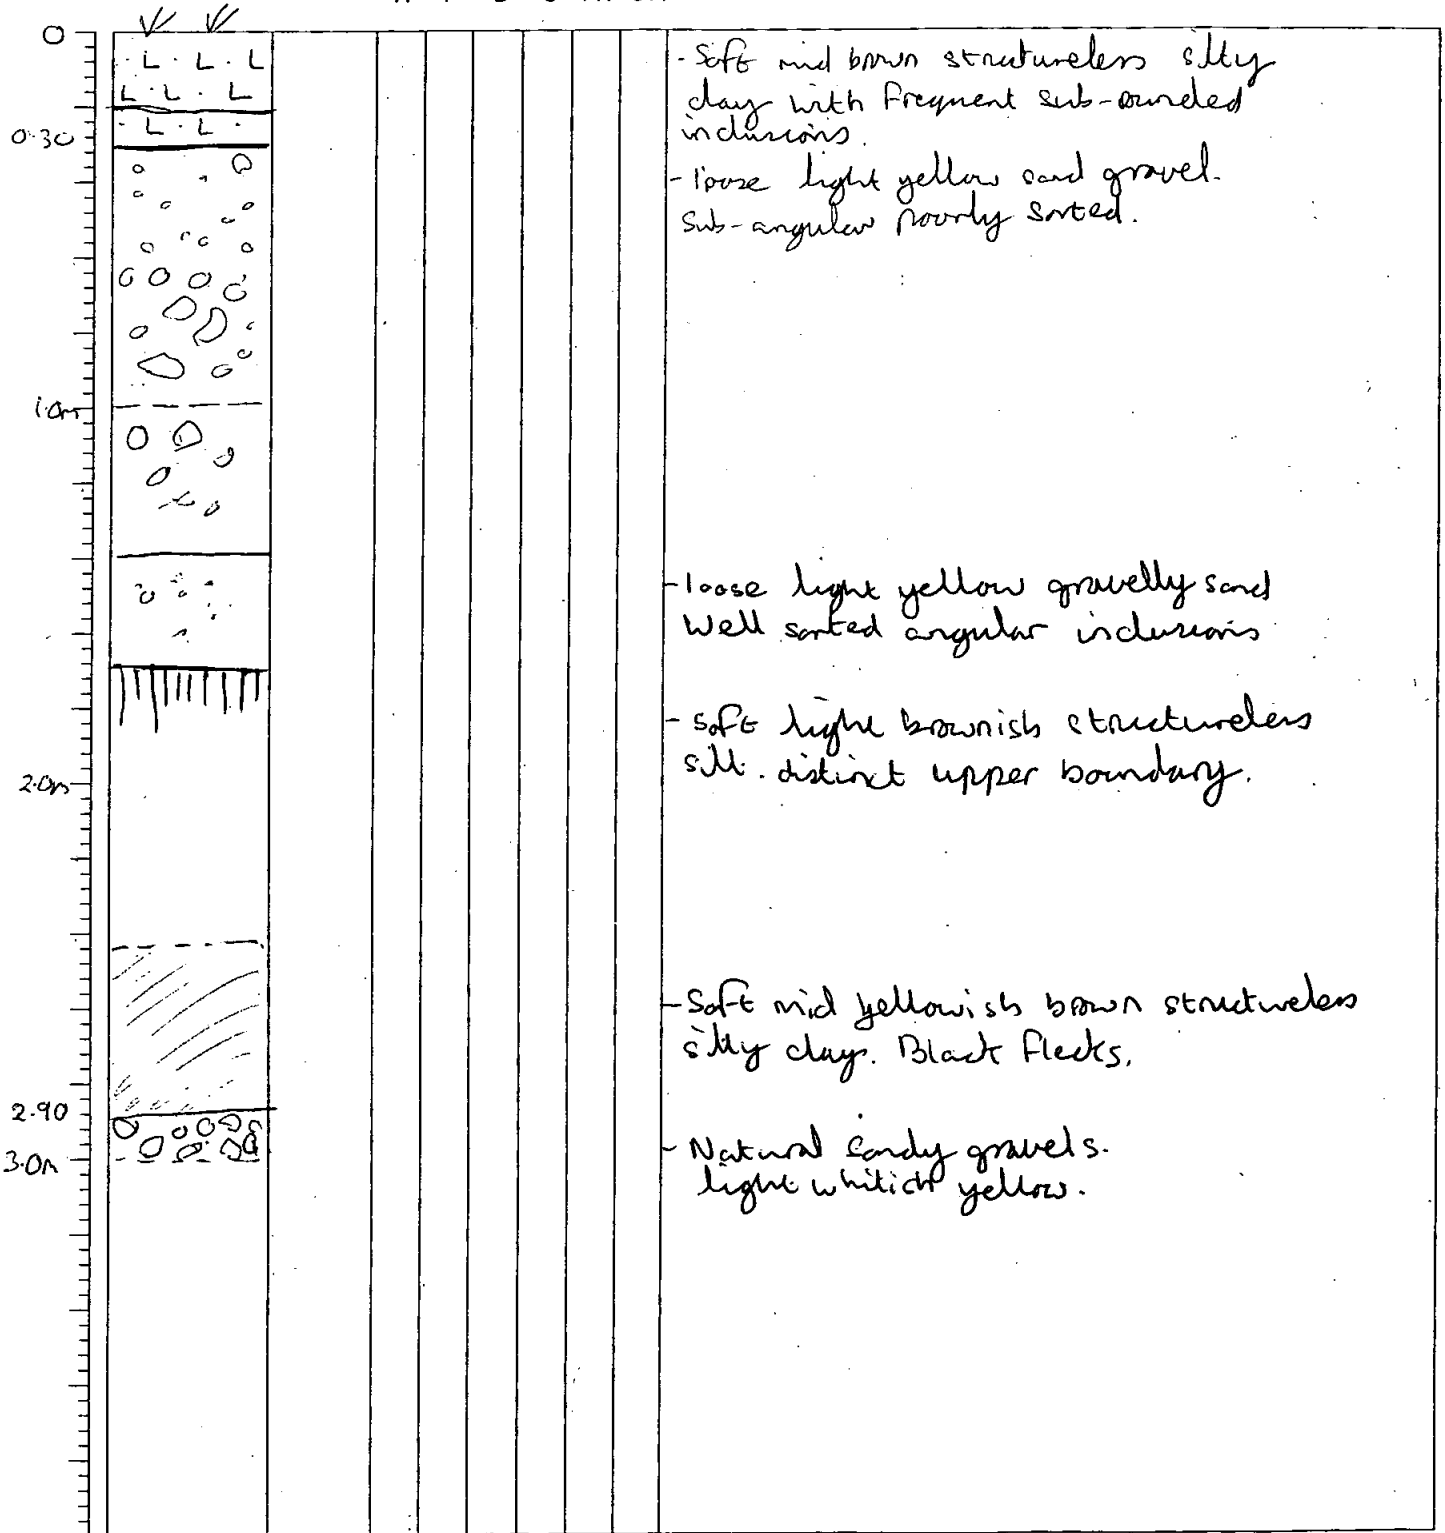 0
- Soft mid brown structureless silty
clay with frequent sub-rounded
inclusions.
0.30
- loose light yellow sand gravel.
Sub-angular poorly sorted.
1.0m
- loose light yellow gravelly sand
Well sorted angular inclusions
- soft light brownish structureless
silt. distinct upper boundary.
2.0m
- Soft mid yellowish brown structureless
silty clay. Black flecks.
2.90
- Natural sandy gravels.
3.0m
light whitish yellow.